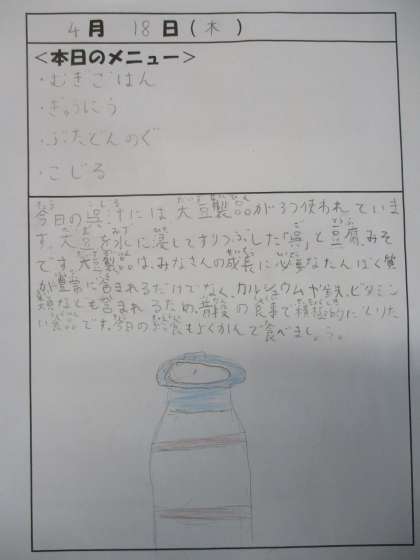 4月 18日(木)
<本日のメニュー>
・むぎごはん
・ぎゅうにう
・ぶたどんのぐ
・ごじる
今日の呉汁には大豆製品が3つ使われていま
す。大豆を水に浸してすりつぶした「呉」と豆腐、みそ
です。大豆製品は、みなさんの成長に必要なたんぱく質
が豊富に含まれるだけでなく、カルシウムや鉄、ビタミン
類なども含まれるため、普段の食事で積極的にとりた
い食品です。今日の給食もよくかんで食べましょう。